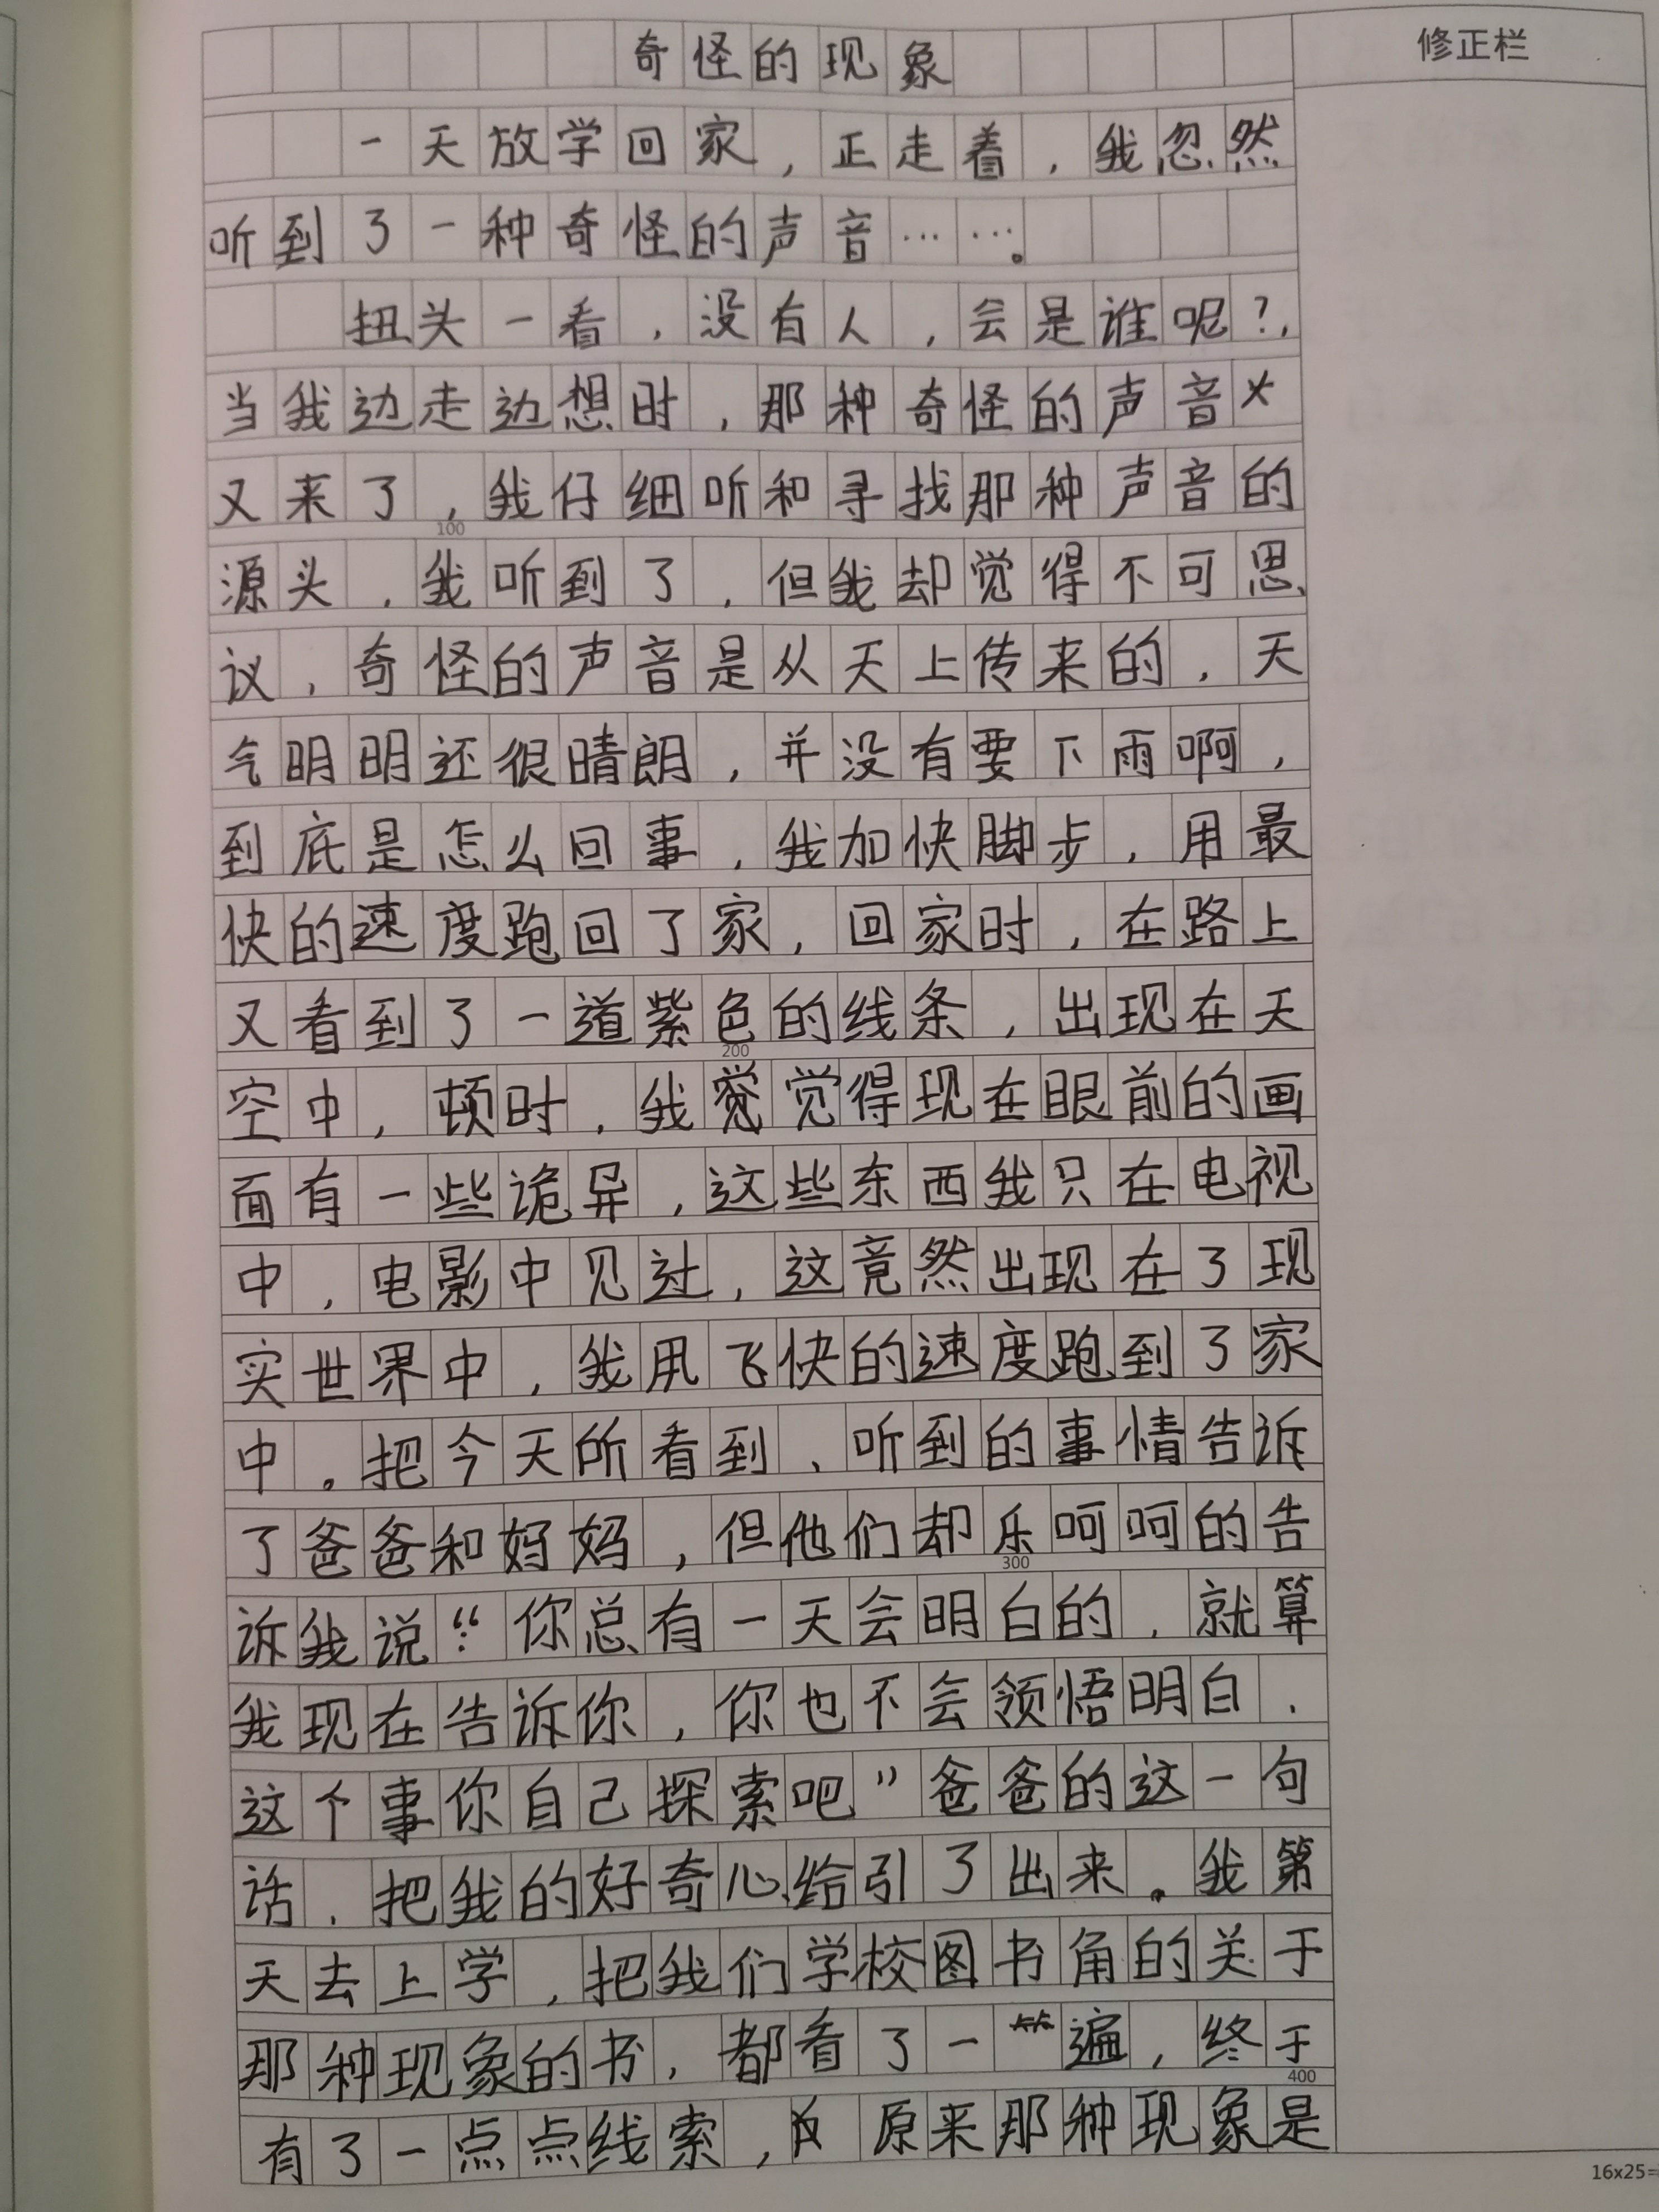 奇怪的现象
修正栏
一天放学回家，正走着，我忽然
听到了一种奇怪的声音……。
扭头一看，没有人，会是谁呢？，
当我边走边想时，那种奇怪的声音
又来了，我仔细听和寻找那种声音的
100
源头，我听到了，但我却觉得不可思
议，奇怪的声音是从天上传来的，天
气明明还很晴朗，并没有要下雨啊，
到底是怎么回事，我加快脚步，用最
快的速度跑回了家，回家时，在路上
又看到了一道紫色的线条，出现在天
200
空中，顿时，我觉得现在眼前的画
面有一些诡异，这些东西我只在电视
中，电影中见过，这竟然出现在了现
实世界中，我用飞快的速度跑到了家
中。把今天所看到、听到的事情告诉
了爸爸和妈妈，但他们却乐呵呵的告
300
诉我说：“你总有一天会明白的，就算
我现在告诉你，你也不会领悟明白，
这个事你自己探索吧”爸爸的这一句
话，把我的好奇心给引了出来。我第
天去上学，把我们学校图书角的关于
那种现象的书，都看了一遍，终于
400
有了一点点线索，原来那种现象是
16x25=